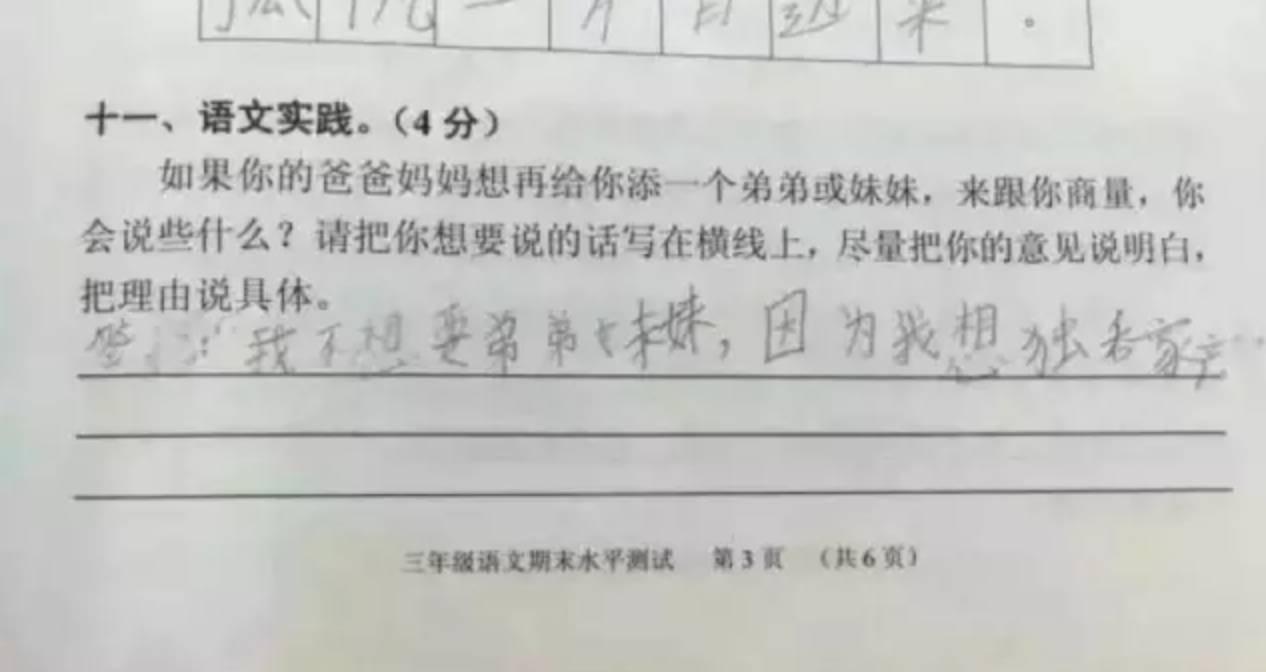 一 个 月 过 来 。
十一、语文实践。（4 分）
如果你的爸爸妈妈想再给你添一个弟弟或妹妹，来跟你商量，你
会说些什么？请把你想要说的话写在横线上，尽量把你的意见说明白，
把理由说具体。
答：我不想要弟弟妹妹，因为我想独吞家产
三年级语文期末水平测试 第 3 页 （共 6 页）